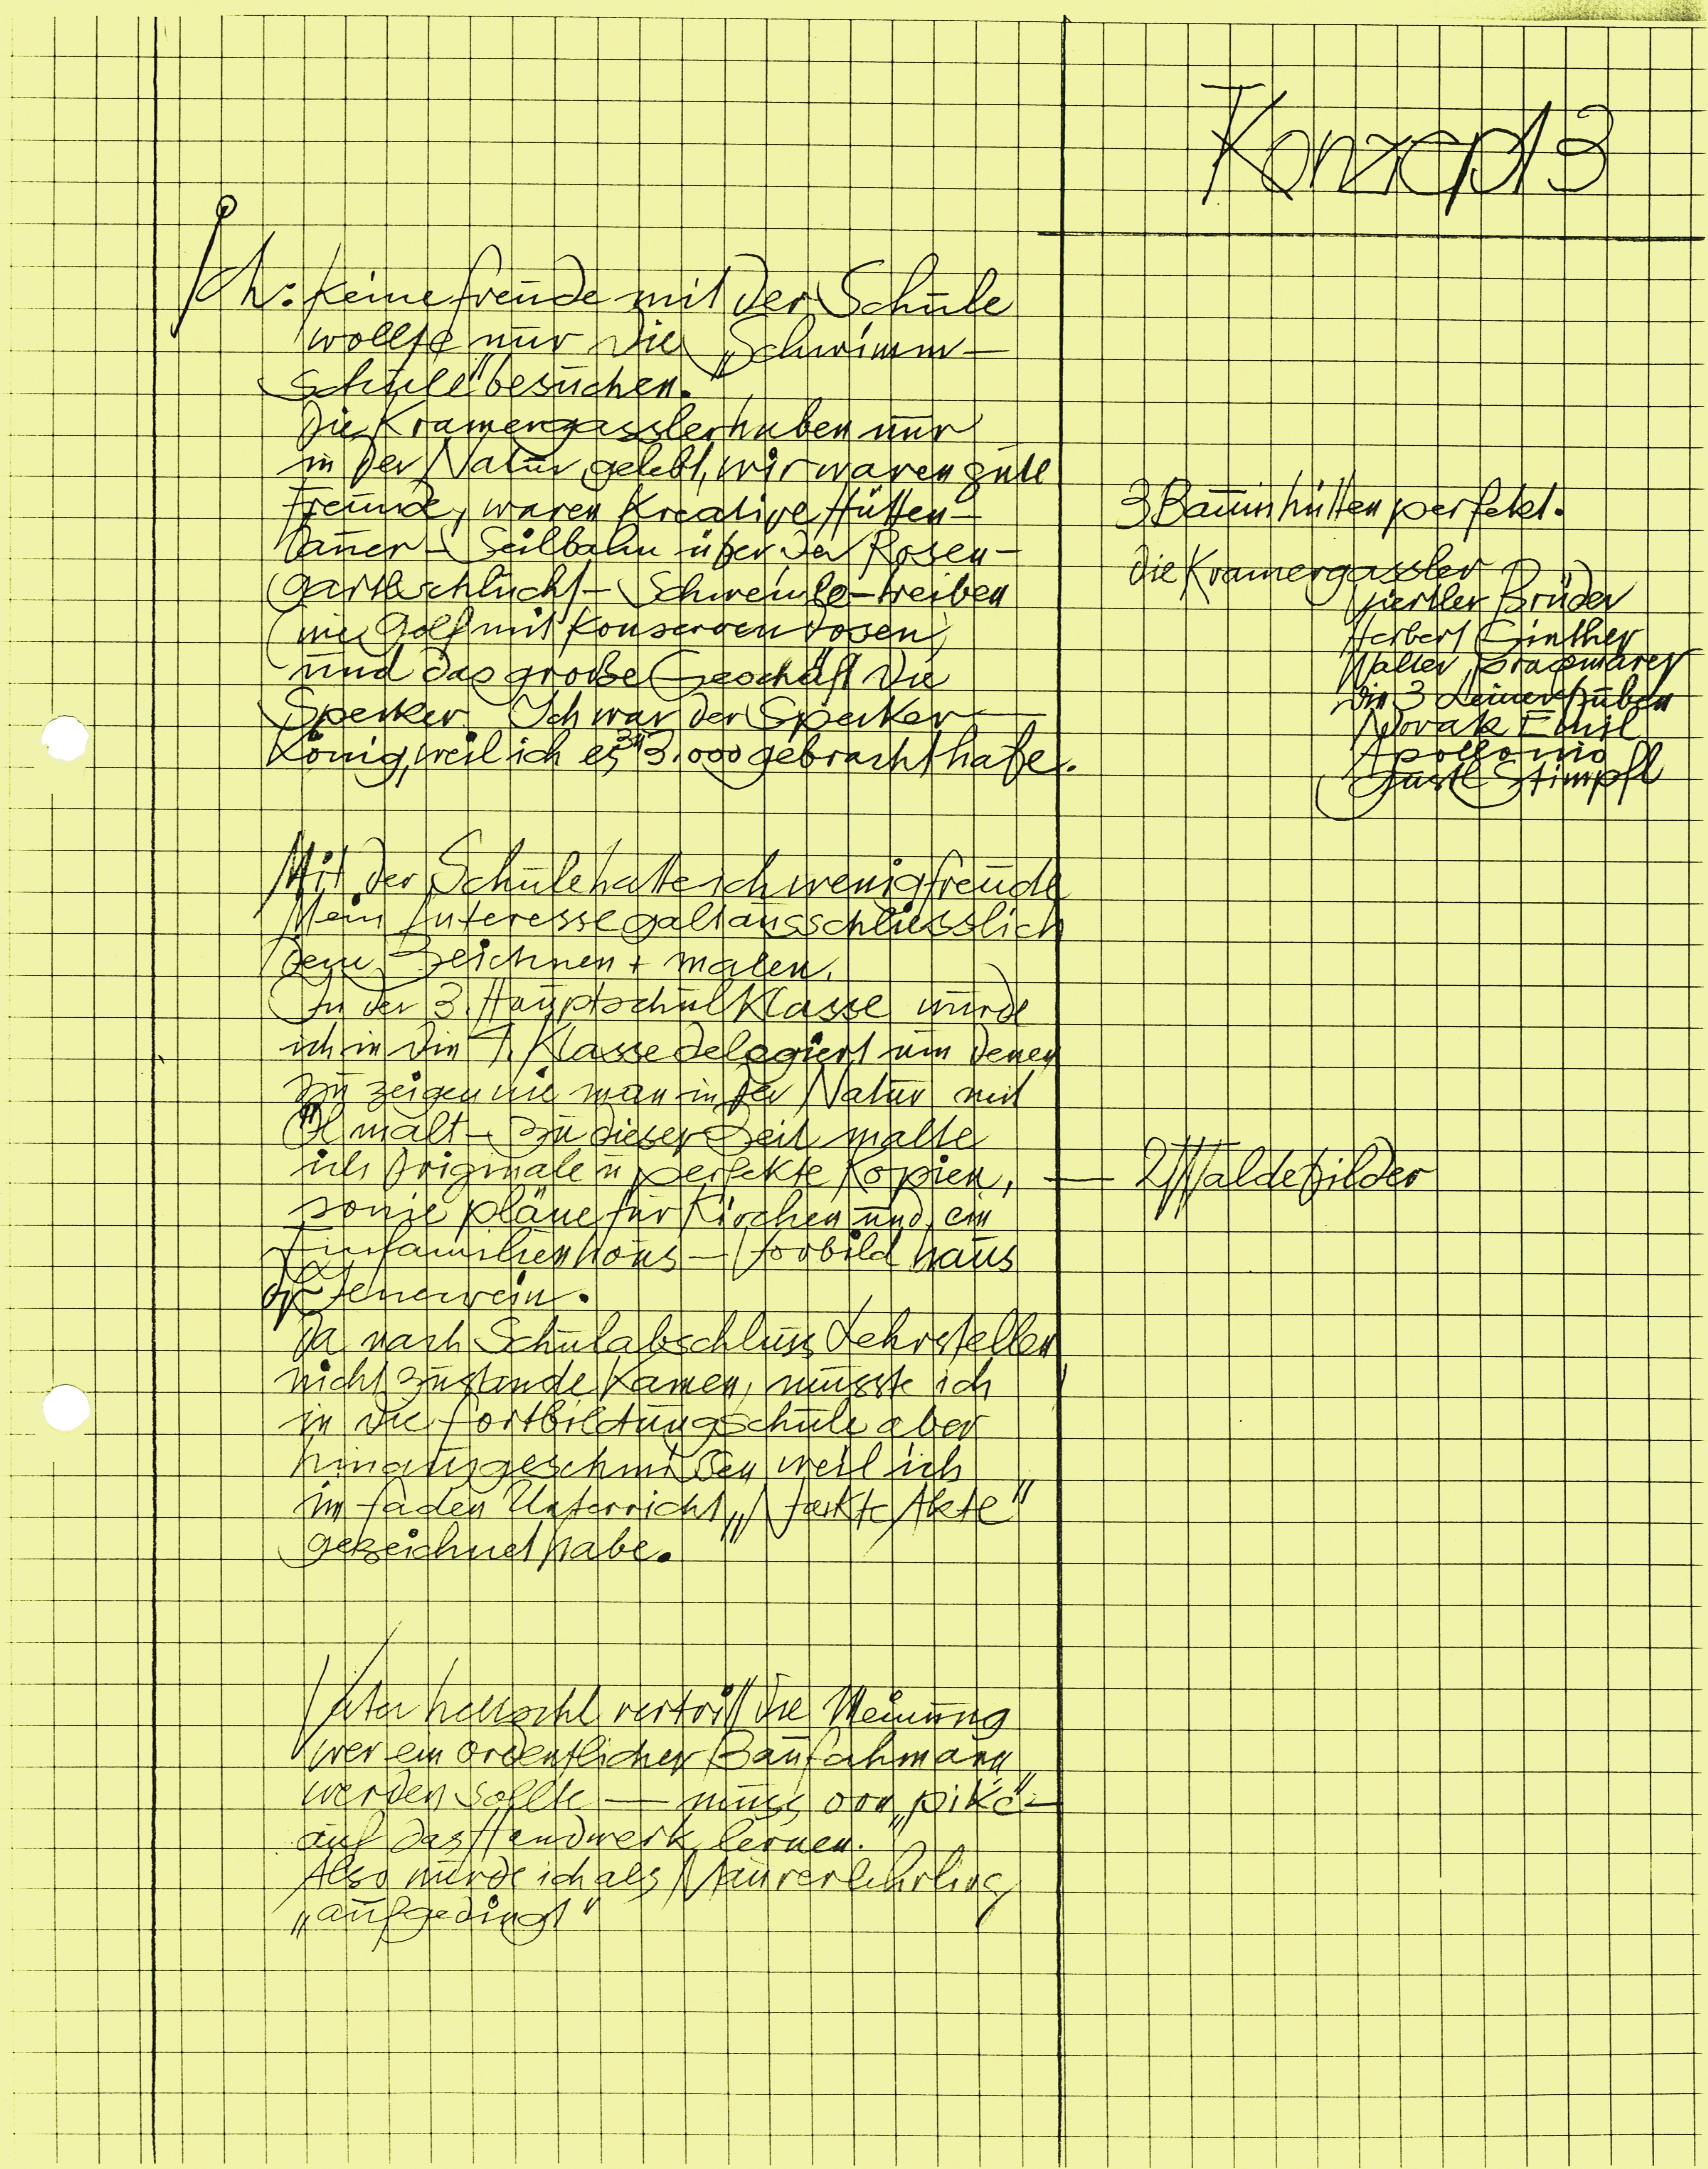 Konzept 3
Ich: keine freude mit der Schule
wollte nur die „Schwimm-
schule" besuchen.
Die Kramergassler haben nur
in der Natur gelebt, wir waren gute
Freunde, waren kreative Hütten-
bauer - Seilbahn über der Rosen-
gartlschlucht - Schweindle-treiben
(wie Golf mit Konservendosen)
und das große Geschäft die
Sperker. Ich war der Sperker-
König, weil ich es 3.000 gebracht habe.
3 Baumhütten perfekt.
die Kramergassler
Viertler Brüder
Herbert Ginther
Walter
die 3 Leiner buben
Novak Emil
Apollonio
Gustl Stimpfl
Mit der Schule hatte ich wenig freude
Mein Interesse galt ausschliesslich
dem Zeichnen + malen.
In der 3. Hauptschulklasse wurde
ich in die 1. Klasse delegiert um denen
zu zeigen wie man in der Natur mit
Öl malt - zu dieser Zeit malte
ich Originale u perfekte Kopien, — 2 Waldebilder
sowie pläne für Kirchen und ein
Einfamilienhaus - Vorbild haus
Jenewein.
Da nach Schulabschluss Lehrstellen
nicht zustande kamen, musste ich
in die fortbildungschule aber
hinausgeschmißen weil ich
im faden Unterricht „Nackte Akte"
gezeichnet habe.
Vater vertritt die Meinung
wer ein ordentlicher Baufahmann
werden sollte — muss von „pike"-
auf das Handwerk lernen.
Also wurde ich als Maurerlehrling
„aufgedingt"